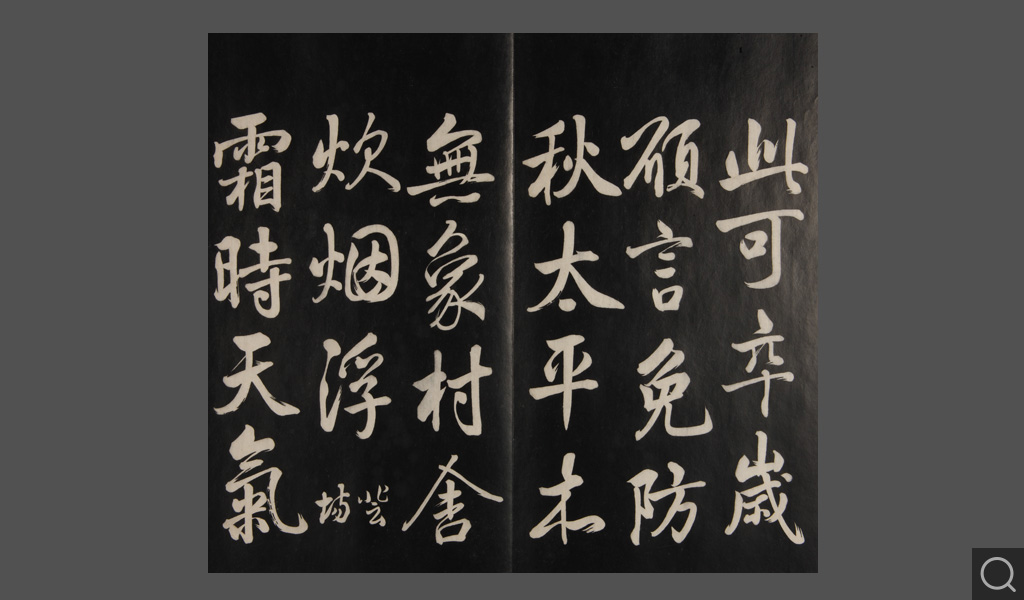 此可卒歲
願言免防
秋太平本
無象村舍
炊烟浮
霜時天氣